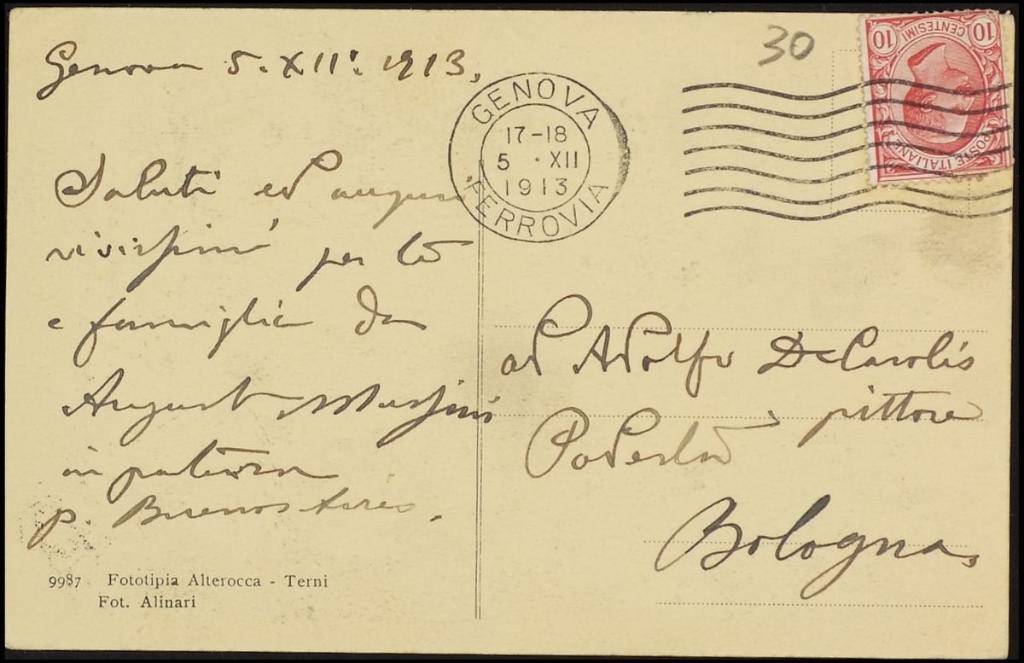 Genova 5. XII. 1913,
Saluti ed auguri
vivissimi per te
e famiglia da
August
in partenza
p. Buenos Aires.
9987 Fototipia Alterocca - Terni
Fot. Alinari
GENOVA
17-18
5 · XII
1913
FERROVIA
30
10 CENTESIMI 10
POSTE ITALIANE
ad Adolfo De Carolis
pittore
Bologna